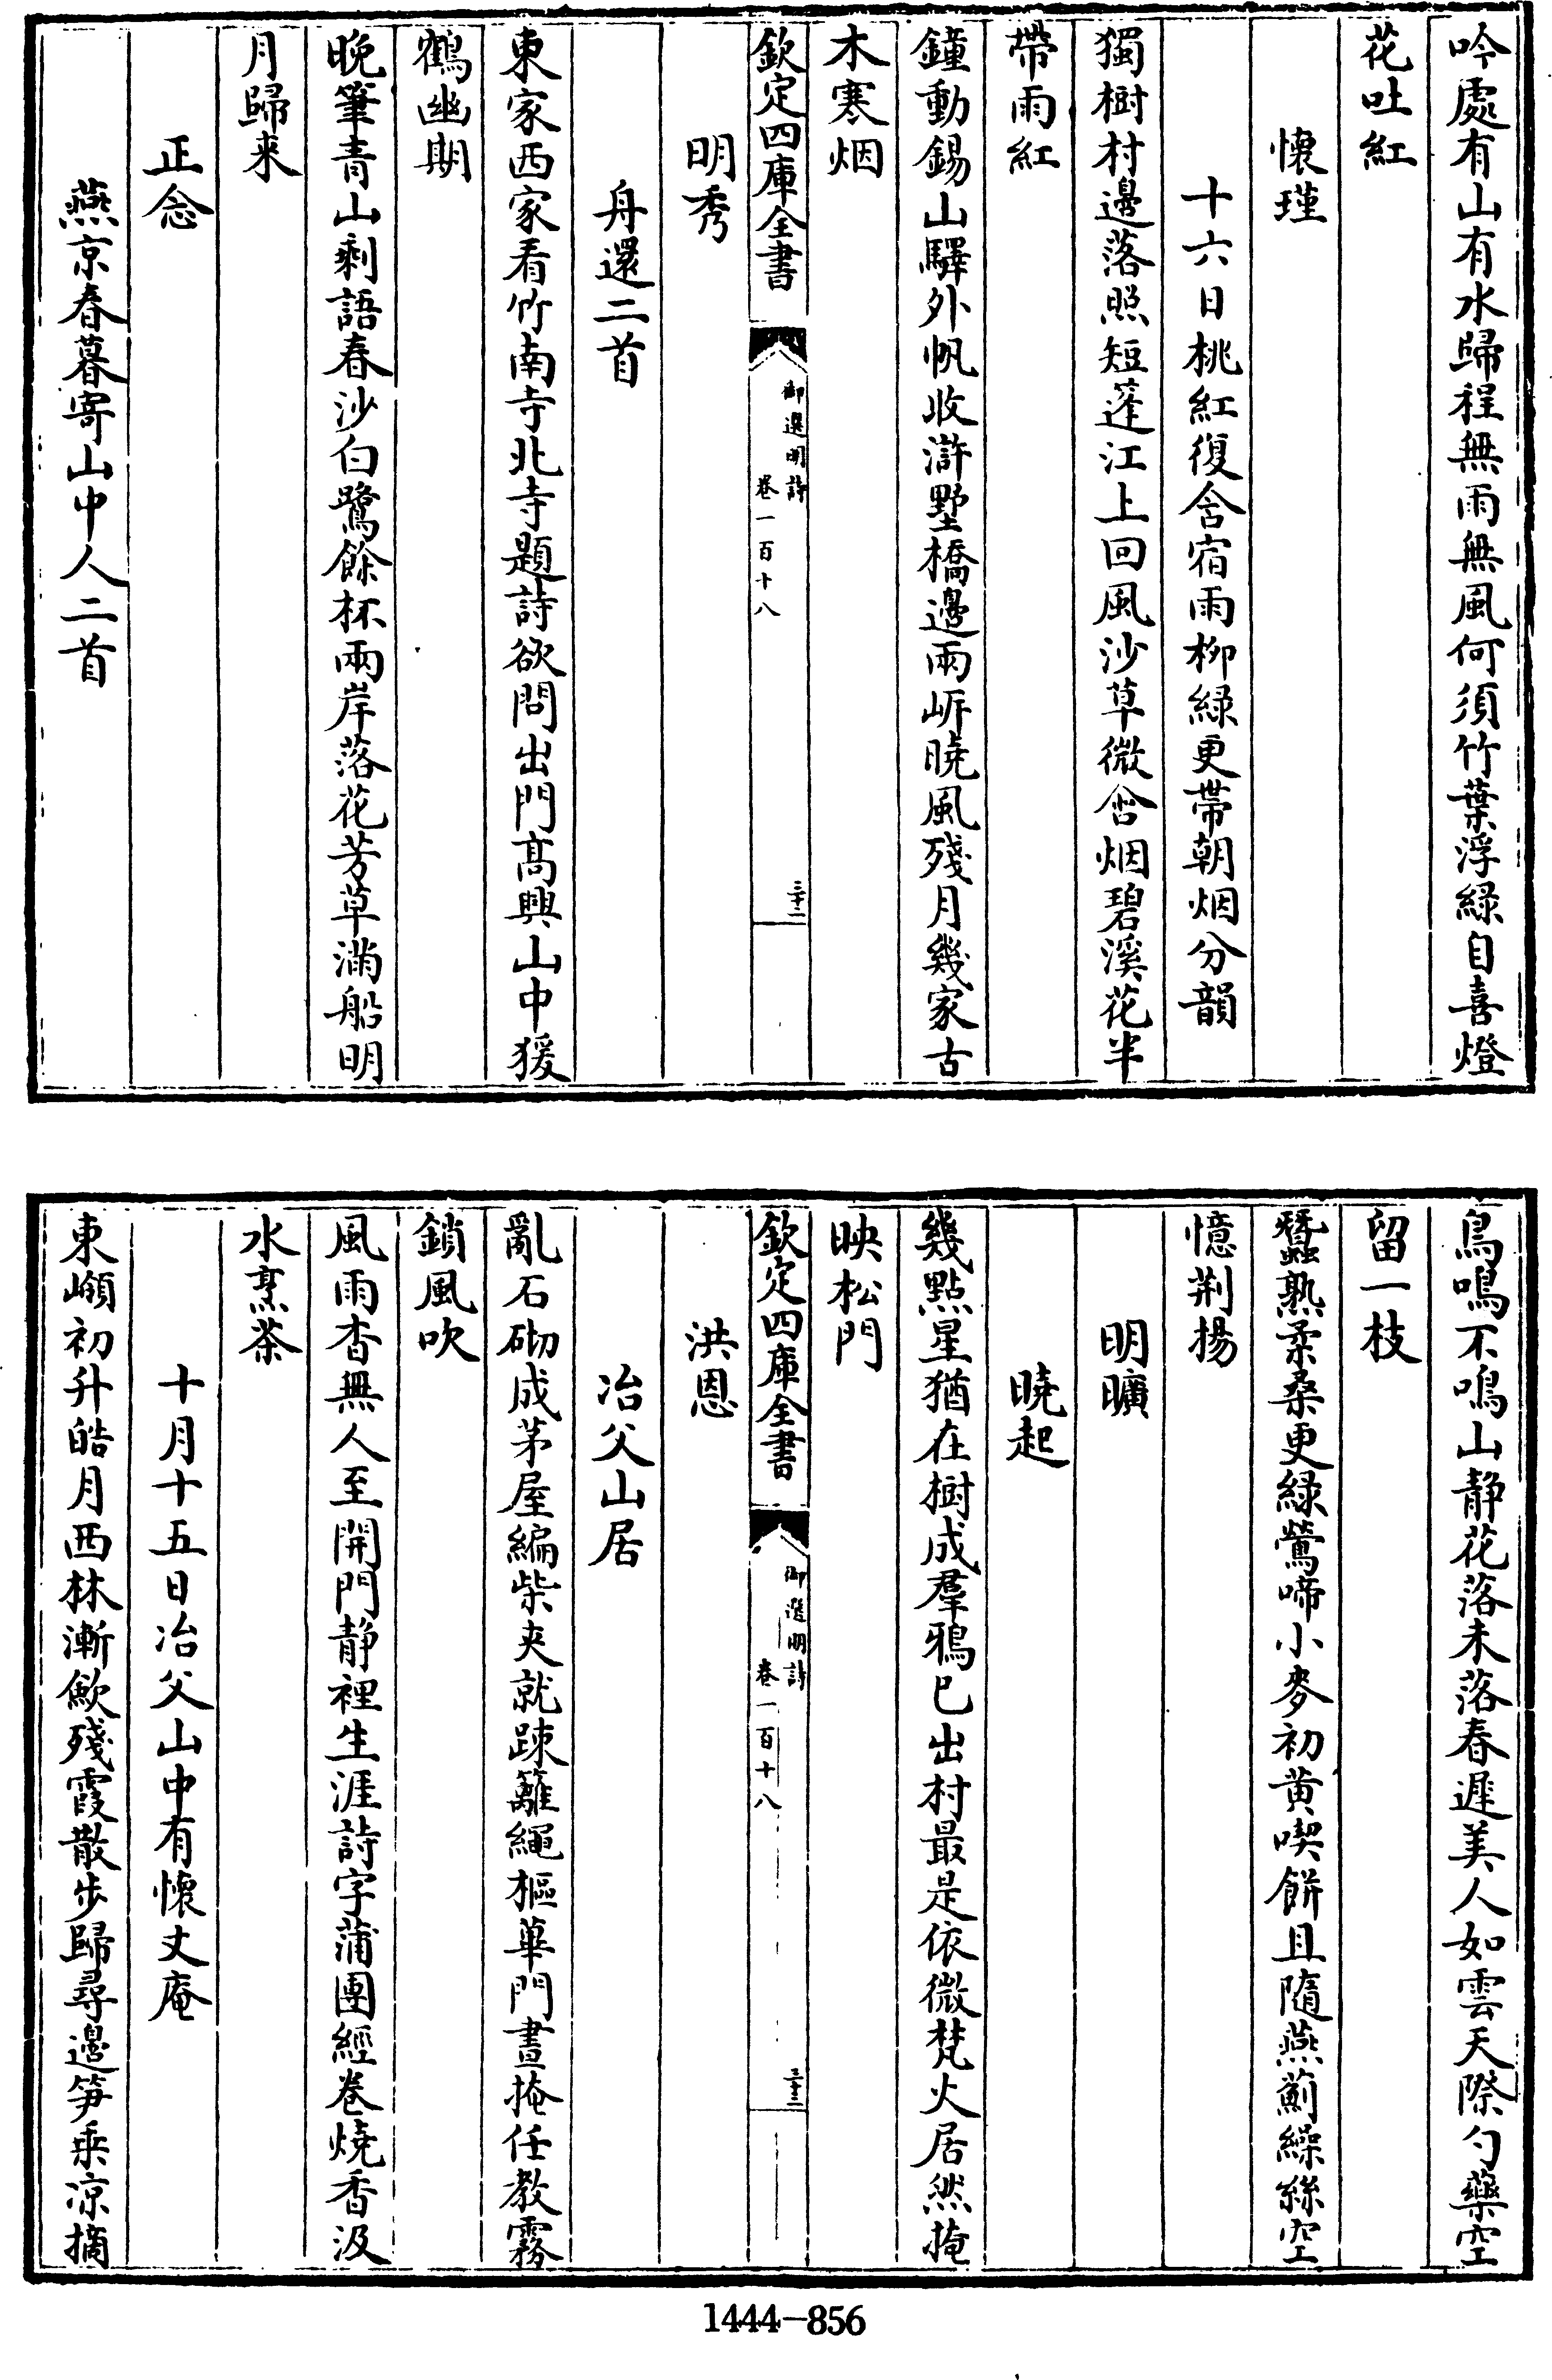 吟處有山有水歸程無雨無風何須竹葉浮綠自喜燈
花吐紅
懷瑾
十六日桃紅復含宿雨柳綠更帶朝烟分韻
獨樹村邊落照短蓬江上回風沙草微含烟碧溪花半
帶雨紅
鐘動錫山驛外帆收滸墅橋邊兩岍曉風殘月幾家古
木寒烟
欽定四庫全書
御選明詩
卷一百十八
三十二
明秀
舟還二首
東家西家看竹南寺北寺題詩欲問出門高興山中猨
鶴幽期
晚筆青山剩語春沙白鷺餘杯兩岸落花芳草滿船明
月歸来
正念
燕京春暮寄山中人二首
鳥鳴不鳴山靜花落未落春遲美人如雲天際勺藥空
留一枝
蠶熟柔桑更綠鶯啼小麥初黃喫餅且隨燕薊繰絲空
憶荆揚
明曠
曉起
幾點星猶在樹成羣鴉已出村最是依微梵火居然掩
映松門
欽定四庫全書
御選明詩
卷一百十八
三十三
洪恩
冶父山居
亂石砌成茅屋編柴夾就踈籬繩樞蓽門晝掩任教霧
鎖風吹
風雨杳無人至開門靜裡生涯詩字蒲團經卷燒香汲
水烹茶
十月十五日冶父山中有懷丈庵
東嶺初升皓月西林漸歛殘霞散步歸尋邉笋乘凉摘
1444-856